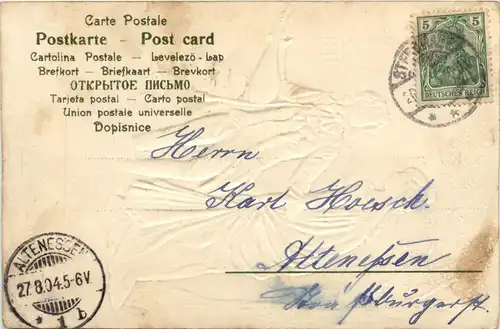 Carte Postale
Postkarte – Post card
Cartolina Postale – Levelező-Lap
Brefkort – Briefkaart – Brevkort
ОТКРЫТОЕ ПИСЬМО
Tarjeta postal – Carto postal
Union postale universelle
Dopisnice
5 5
DEUTSCHES REICH
Herrn
Karl Hoesch.
Altenessen
Straßburgerst.
ALTENESSEN
27.8.04.5-6V.
* 1 b